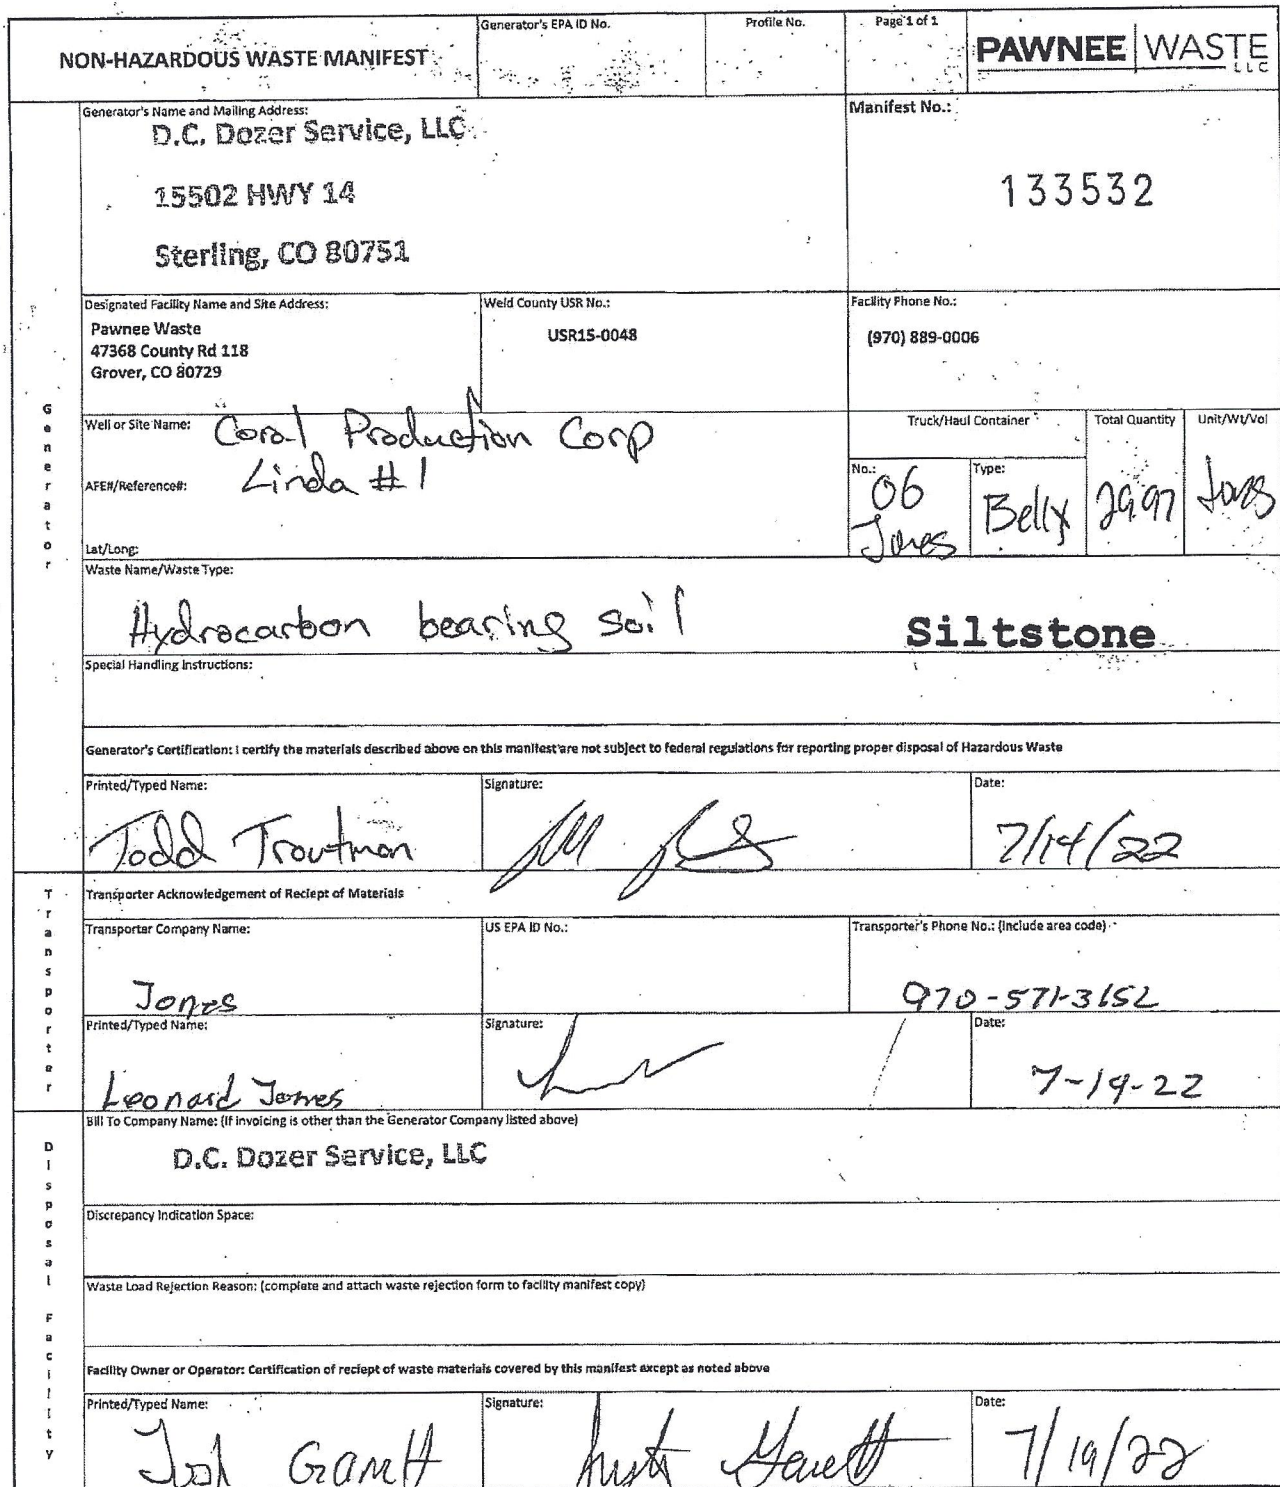 NON-HAZARDOUS WASTE MANIFEST
Generator's EPA ID No.
Profile No.
Page 1 of 1
PAWNEE WASTE LLC
Generator's Name and Mailing Address:
D.C. Dozer Service, LLC
15502 HWY 14
Sterling, CO 80751
Manifest No.:
133532
Designated Facility Name and Site Address:
Pawnee Waste
47368 County Rd 118
Grover, CO 80729
Weld County USR No.:
USR15-0048
Facility Phone No.:
(970) 889-0006
Generator
Well or Site Name: Coral Production Corp
AFE#/Reference#: Linda #1
Lat/Long:
Truck/Haul Container
No.:
06
Jones
Type:
Belly
Total Quantity
29.97
Unit/Wt/Vol
tons
Waste Name/Waste Type:
Hydrocarbon bearing soil
Siltstone
Special Handling Instructions:
Generator's Certification: I certify the materials described above on this manifest are not subject to federal regulations for reporting proper disposal of Hazardous Waste
Printed/Typed Name:
Todd Troutman
Signature:
Date:
7/14/22
Transporter
Transporter Acknowledgement of Reciept of Materials
Transporter Company Name:
Jones
US EPA ID No.:
Transporter's Phone No.: (include area code)
970-571-3152
Printed/Typed Name:
Leonard Jones
Signature:
Date:
7-19-22
Disposal Facility
Bill To Company Name: (If invoicing is other than the Generator Company listed above)
D.C. Dozer Service, LLC
Discrepancy Indication Space:
Waste Load Rejection Reason: (complete and attach waste rejection form to facility manifest copy)
Facility Owner or Operator: Certification of reciept of waste materials covered by this manifest except as noted above
Printed/Typed Name:
Garrett
Signature:
Date:
7/19/22